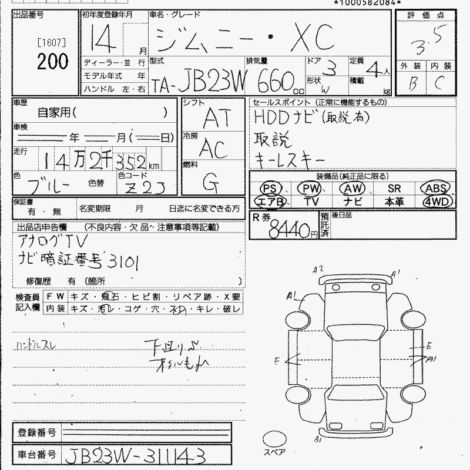 *1000582084*
出品番号
[1607]
200
初年度登録年月
14 月
ディーラー・並行
モデル年式 年
ハンドル 左・右
車名・グレード
ジムニー・XC
型式
TA-JB23W
排気量
660 CC
ドア
3
形状
W
定員
4人
積載
kg
評価点
3.5
外装 内装
B C
車歴
自家用( )
車検
年 月( 日)
走行
14万2千352km
色
ブルー
色替
色コード
Z2J
シフト
AT
冷房
AC
燃料
G
セールスポイント (正常に機能するもの)
HDDナビ(取説有)
取説
キーレスキー
装備品(純正品に限る)
PS PW AW SR ABS
エアB TV ナビ 本革 4WD
保証書
有・無
名変期限 月 日迄に名変できる方
R券
8440円
預託済
後日品
出品店申告欄 (不良内容・欠品~注意事項等記載)
アナログTV
ナビ暗証番号3101
修復歴 有(箇所 )
検査員記入欄
FW キズ・飛石・ヒビ割・リペア跡・X要
内装 キズ・汚レ・コゲ・穴・スレ・キレ・破レ
ハンドルスレ
下回り
A2 A1
A1
E
E
A1
A1
スペア
登録番号
車台番号
JB23W-311143